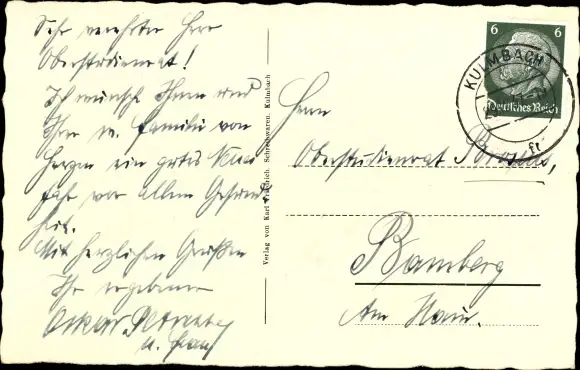 Sehr verehrter Herr
Oberstudienrat!
Ich wünsche Ihnen und
Ihrer w. Familie von
Herzen ein gutes Neu-
jahr vor allem Gesund-
heit.
Mit herzlichen Grüßen
Ihr ergebener
Oskar
u. Frau
Verlag von Karl Friedrich, Schreibwaren, Kulmbach
6 6
Deutsches Reich
KULMBACH
Herrn
Oberstudienrat
Bamberg
Am Hain.